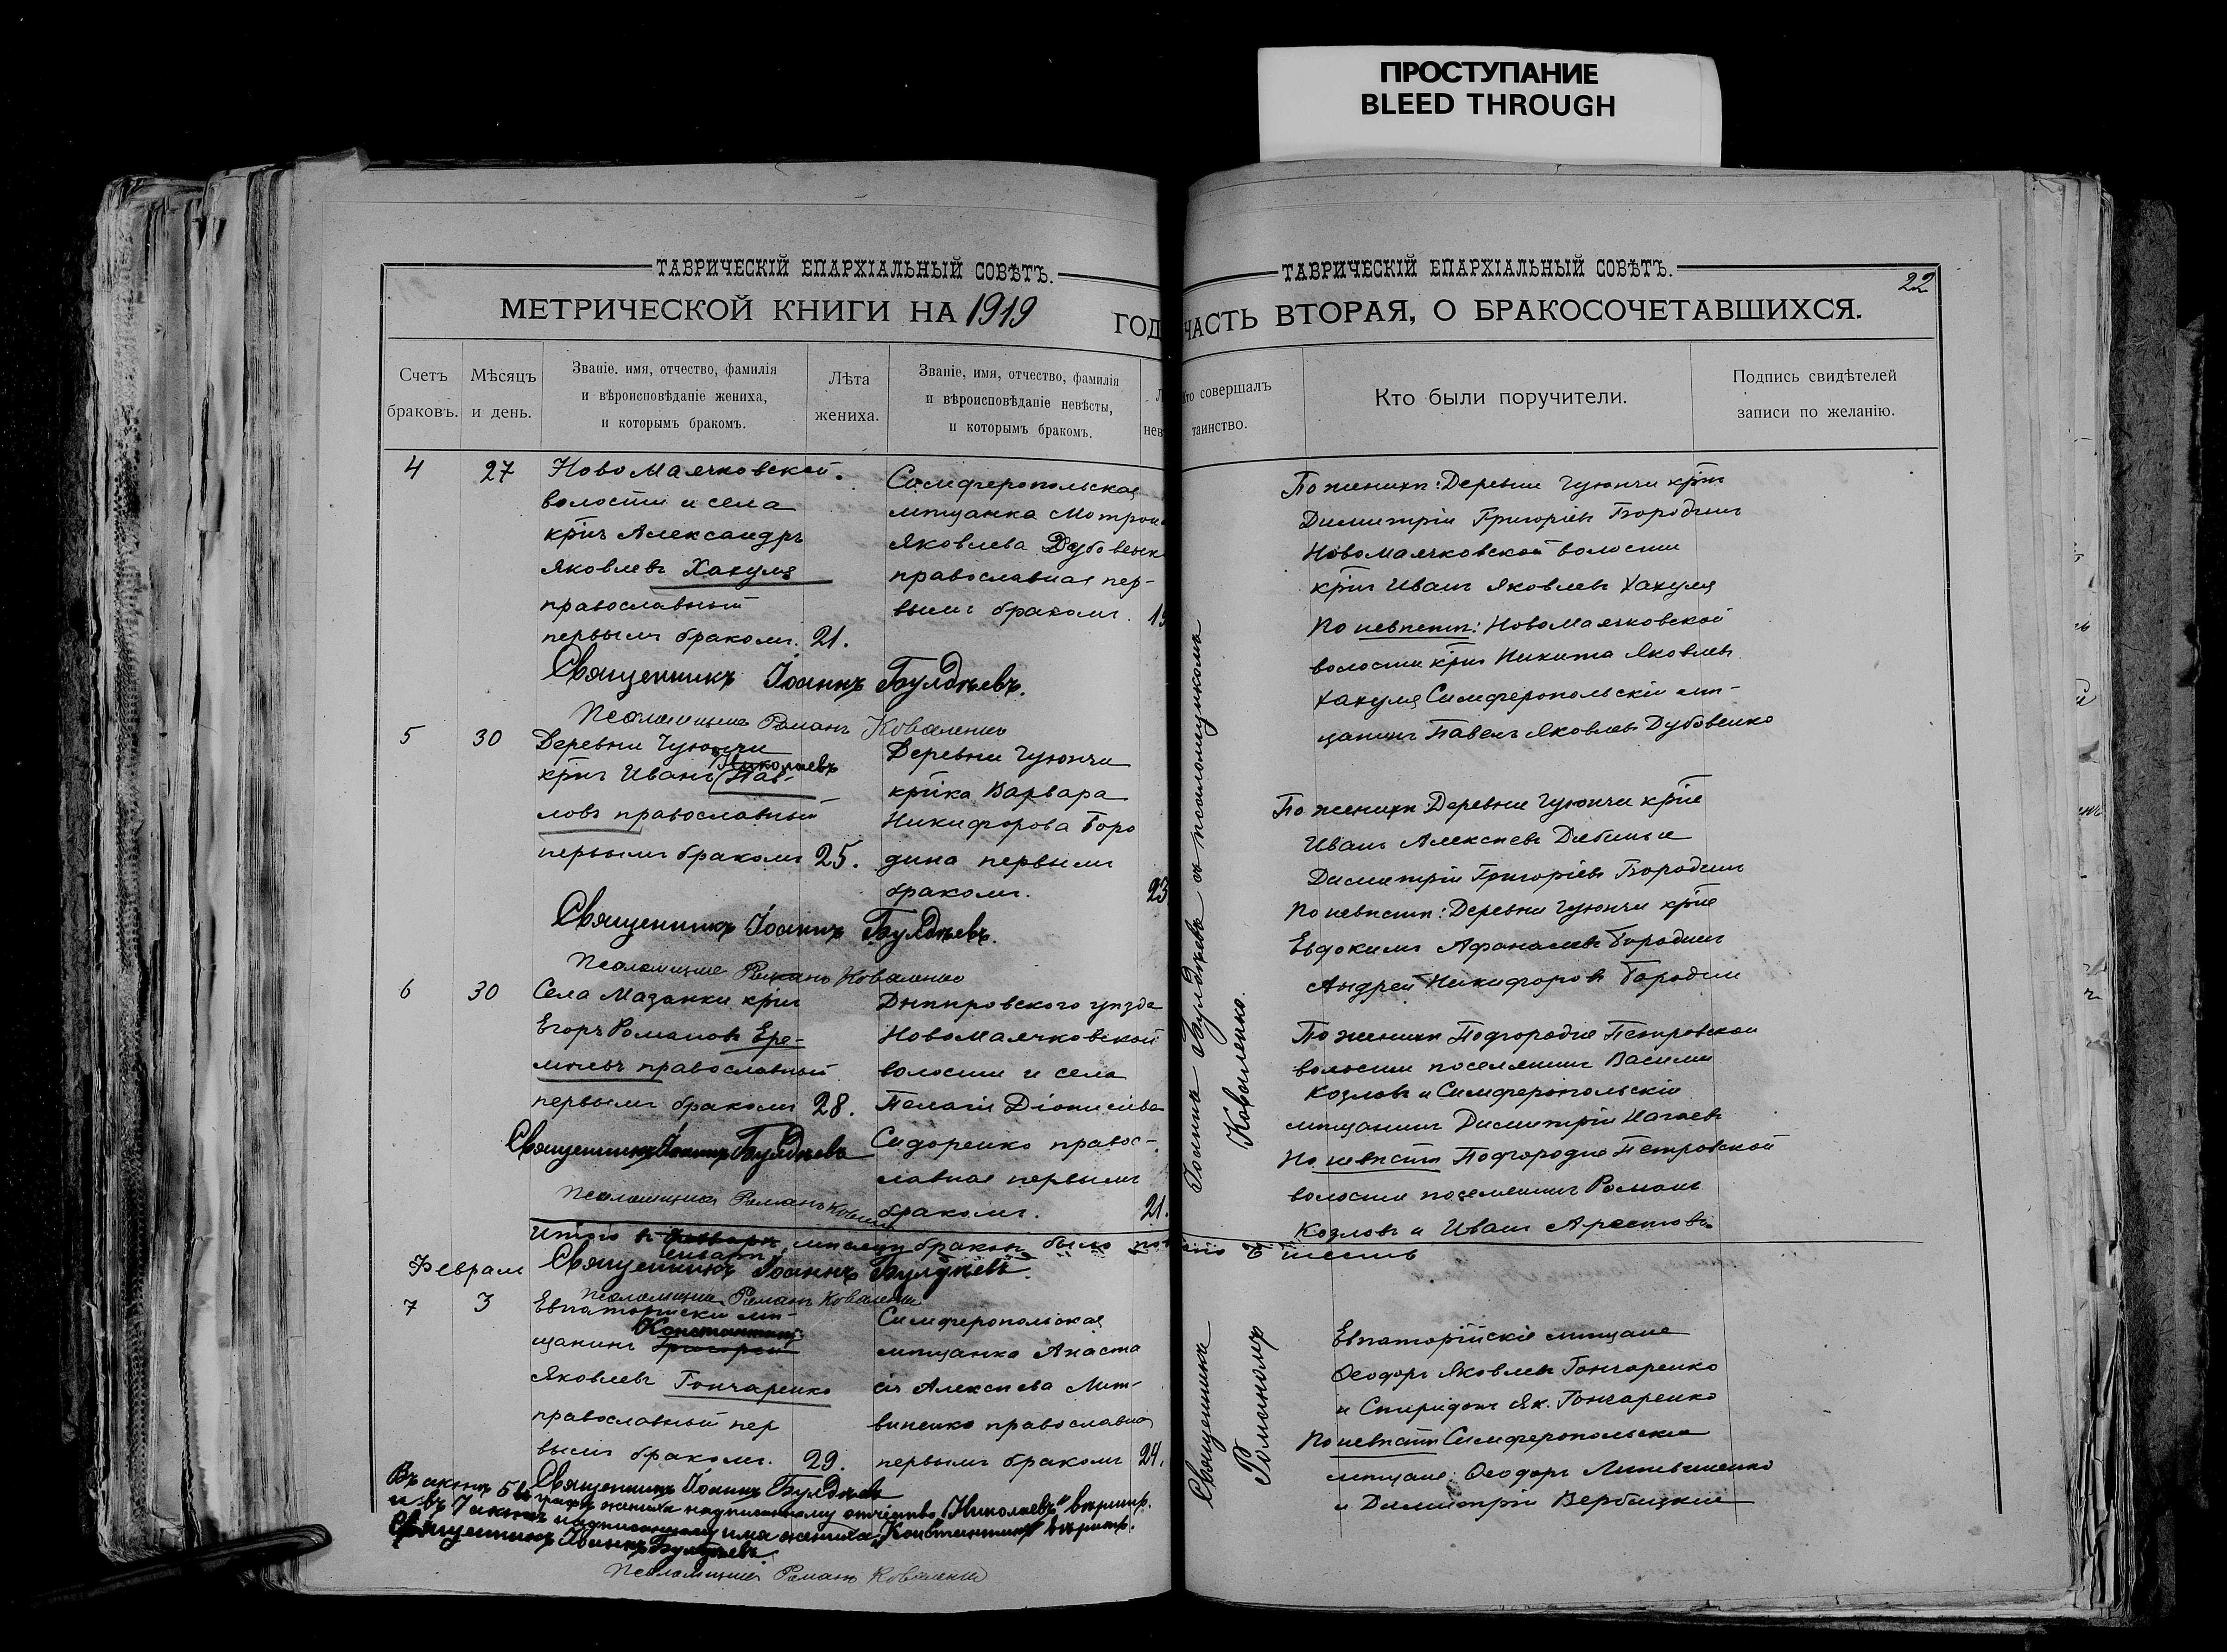 ПРОСТУПАНИЕ
BLEED THROUGH
ТАВРИЧЕСКІЙ ЕПАРХІАЛЬНЫЙ СОВѢТЪ.
МЕТРИЧЕСКОЙ КНИГИ НА 1919 ГОД
Счетъ браковъ.
Мѣсяцъ и день.
Званіе, имя, отчество, фамилія
и вѣроисповѣданіе жениха,
и которымъ бракомъ.
Лѣта
жениха.
Званіе, имя, отчество, фамилія
и вѣроисповѣданіе невѣсты,
и которымъ бракомъ.
Л
нев
4 27
НовоМаячковской
волости и села
кр̃нъ Александръ
Яковлевъ Хакуля
православный
первымъ бракомъ. 21.
Симферопольская
мѣщанка Мотрон
Яковлева Дубовенк
православная пер-
вымъ бракомъ. 19
Священникъ Іоаннъ Булдѣевъ.
Псаломщикъ Романъ Коваленко
5 30
Деревни Чуюнчи
Николаевъ
кр̃нъ Иванъ Пав-
ловъ православный
первымъ бракомъ 25.
Деревни Чуюнчи
кр̃нка Варвара
Никифорова Боро
дина первымъ
бракомъ. 23
Священникъ Іоаннъ Булдѣевъ.
Псаломщикъ Романъ Коваленко
6 30
Села Мазанки кр̃нъ
Егоръ Романовъ Ере-
мѣевъ православный
первымъ бракомъ 28.
Днѣпровского уѣзда
НовоМаячковской
волости и села
Пелагія Діонисіева
Сидоренко правос-
лавная первымъ
бракомъ. 21.
Священникъ Іоаннъ Булдѣевъ
Псаломщикъ Романъ Ковален
Итого въ
Январѣ мѣсяцѣ браковъ было
6 шесть
Священникъ Іоаннъ Булдѣевъ.
Псаломщикъ Романъ Коваленко
Феврал
7 3
Евпаторійскій мѣ-
Константинъ
щанинъ Григорій
Яковлевъ Гончаренко
православный пер
вымъ бракомъ. 29.
Симферопольская
мѣщанка Анаста
сія Алексѣева Лит-
виненко православная
первымъ бракомъ 24.
Священникъ Іоаннъ Булдѣевъ
Въ актѣ 5м графѣ жениха надписанному отчество „Николаевъ" вѣрить.
и въ 7 актѣ надписанному имя жениха „Константинъ" вѣрить.
Священникъ Іоаннъ Булдѣевъ.
Псаломщикъ Романъ Коваленко
ТАВРИЧЕСКІЙ ЕПАРХІАЛЬНЫЙ СОВѢТЪ.
22
ЧАСТЬ ВТОРАЯ, О БРАКОСОЧЕТАВШИХСЯ.
Кто совершалъ
таинство.
Кто были поручители.
Подпись свидѣтелей
записи по желанію.
Священникъ Іоаннъ Булдѣевъ съ псаломщикомъ
Романомъ Коваленко.
По женихѣ: Деревни Чуюнчи кр̃нъ
Димитрій Григорьевъ Бородинъ
НовоМаячковской волости
кр̃нъ Иванъ Яковлевъ Хакуля
По невѣстѣ: НовоМаячковской
волости кр̃нъ Никита Яковлевъ
Хакуля Симферопольскій мѣ-
щанинъ Павелъ Яковлевъ Дубовенко
По женихѣ: Деревни Чуюнчи кр̃не
Иванъ Алексѣевъ
Димитрій Григорьевъ Бородинъ
По невѣстѣ: Деревни Чуюнчи кр̃не
Евдокимъ Афанасьевъ Бородинъ
Андрей Никифоровъ Бородин
По женихѣ Подгородне Петровской
волости поселянинъ Василій
Козловъ и Симферопольскій
мѣщанинъ Димитрій Нагаевъ
По невѣстѣ Подгородне Петровской
волости поселянинъ Романъ
Козловъ и Иванъ Арестовъ
Евпаторійскіе мѣщане
Ѳеодоръ Яковлевъ Гончаренко
и Спиридонъ Як. Гончаренко
По невѣстѣ Симферопольскіе
мѣщане: Ѳеодоръ Литвиненко
и Димитрій Вербицкій